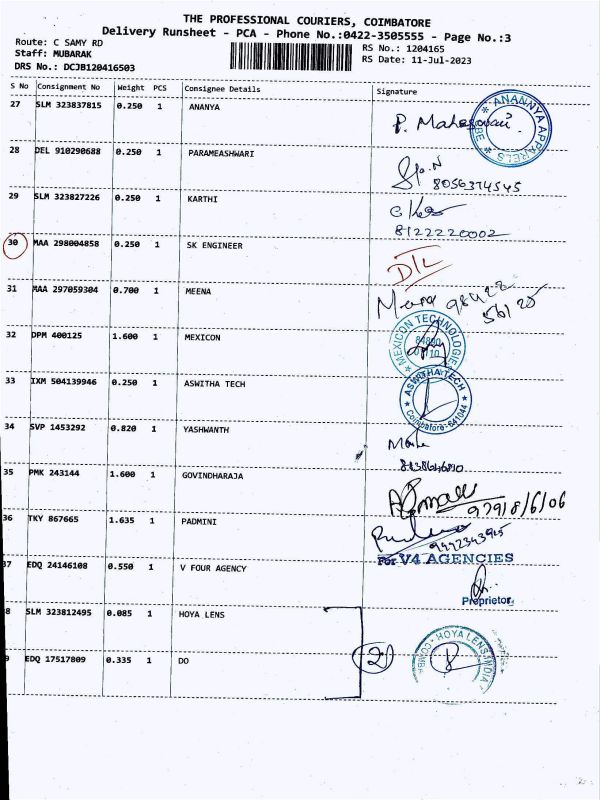 THE PROFESSIONAL COURIERS, COIMBATORE
Delivery Runsheet - PCA - Phone No.:0422-3505555 - Page No.:3
Route: C SAMY RD
Staff: MUBARAK
DRS No.: DCJB120416503
RS No.: 1204165
RS Date: 11-Jul-2023
S No Consignment No Weight PCS Consignee Details Signature
27 SLM 323837815 0.250 1 ANANYA
ANANNYA APPARELS
28 DEL 910290688 0.250 1 PARAMEASHWARI
8056374545
29 SLM 323827226 0.250 1 KARTHI
8122220002
30 MAA 298004858 0.250 1 SK ENGINEER
D/L
31 MAA 297059304 0.700 1 MEENA
32 DPM 400125 1.600 1 MEXICON
MEXICON TECHNOLOGIE
33 IXM 504139946 0.250 1 ASWITHA TECH
ASWITHA TECH
Coimbatore-641044
34 SVP 1453292 0.820 1 YASHWANTH
35 PMK 243144 1.600 1 GOVINDHARAJA
36 TKY 867665 1.635 1 PADMINI
37 EDQ 24146108 0.550 1 V FOUR AGENCY
For V4 AGENCIES
Proprietor.
8 SLM 323812495 0.085 1 HOYA LENS
9 EDQ 17517809 0.335 1 DO
2
HOYA LENS INDIA